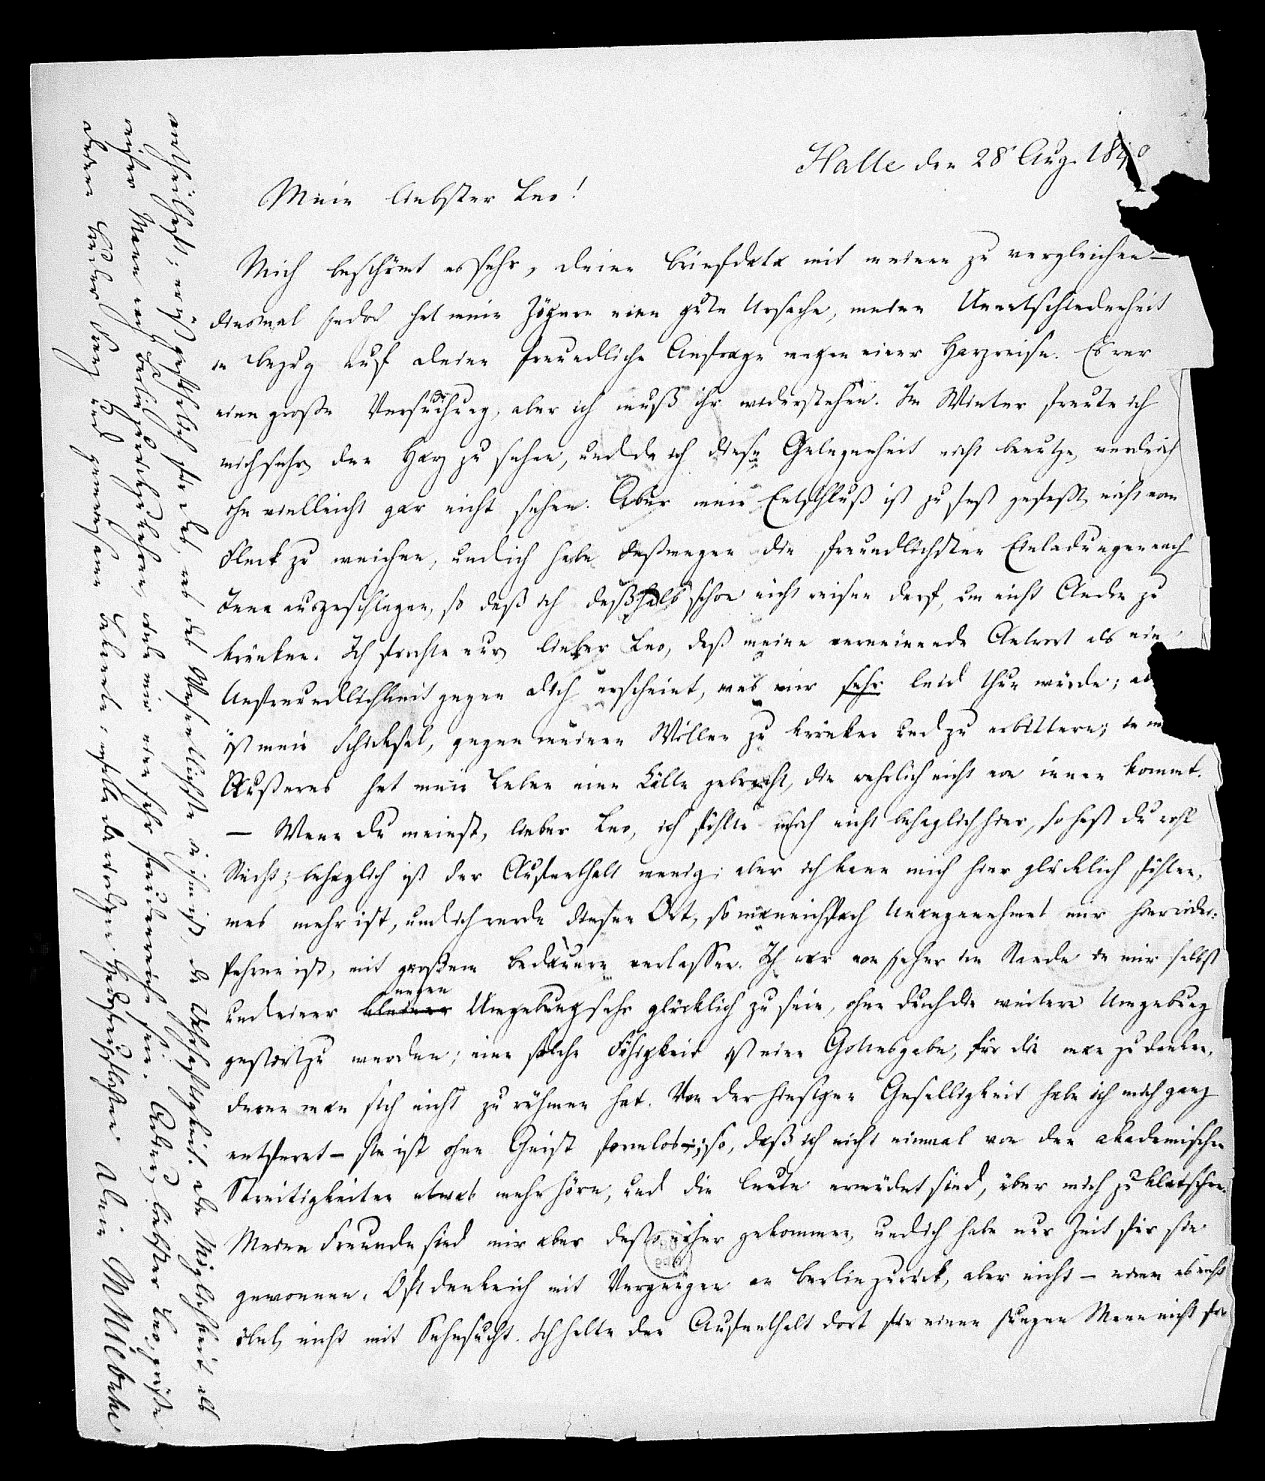 Halle den 28 Aug. 184
Mein liebster Leo!
Mich beschämt es sehr, deine Briefdata mit meinen zu vergleichen —
diesmal jedoch hat mein Zögern eine gute Ursache, meine Unentschiedenheit
in Bezug auf deine freundliche Anfrage wegen einer Harzreise. Es war
eine große Versuchung, aber ich muß ihr widerstehen. Im Winter freute ich
mich sehr, den Harz zu sehen, und da ich diese Gelegenheit nicht benutze, werde ich
ihn vielleicht gar nicht sehen. Aber mein Entschluß ist zu fest gefaßt, nicht vom
Fleck zu weichen, und ich habe deßwegen die freundlichsten Einladungen nach
Jena ausgeschlagen, so daß ich deßhalb schon nicht reisen darf, um nicht Andre zu
kränken. Ich fürchte nur, lieber Leo, daß meine verneinende Antwort als eine
Unfreundlichkeit gegen dich erscheint, was mir sehr leid thun würde; ab
ist mein Schicksal, gegen meinen Willen zu kränken und zu erbittern; in m
Äußeres hat mein Leben eine Kälte gebracht, die wahrlich nicht von innen kommt.
— Wenn du meinst, lieber Leo, ich fühlte mich nicht behaglich hier, so hast du wohl
Recht; behaglich ist der Aufenthalt wenig; aber ich kann mich hier glücklich fühlen,
was mehr ist, und ich werde diesen Ort, so mannichfach Unangenehmes mir hier wider-
fahren ist, mit großem Bedauern verlassen. Ich war von jeher im Stande in mir selbst
und einer kleinen engen Umgebung sehr glücklich zu sein, ohne durch die weitere Umgebung
gestört zu werden; eine solche Fähigkeit ist eine Gottesgabe, für die man zu danken,
deren man sich nicht zu rühmen hat. Von der hiesigen Geselligkeit habe ich mich ganz
entfernt — sie ist ohne Geist formlos; so, daß ich nicht einmal von den akademischen
Streitigkeiten etwas mehr höre, und die Leute ermüdet sind, über mich zu klatschen.
Meine Freunde sind mir aber desto näher gekommen, und ich habe nur Zeit für sie
gewonnen. Oft denke ich mit Vergnügen an Berlin zurück, aber nicht — nimm es nicht
übel, nicht mit Sehnsucht. Ich halte den Aufenthalt dort für einen jungen Mann nicht für
vortheilhaft; für das, was das Wesentlichste in ihm ist, die Wahrhaftigkeit. die Möglichkeit, als
Mann nach Berlin zurückzukehren, würde mir eine sehr sein. Adieu, liebster Leo, grüße
deine lieben und
Dein